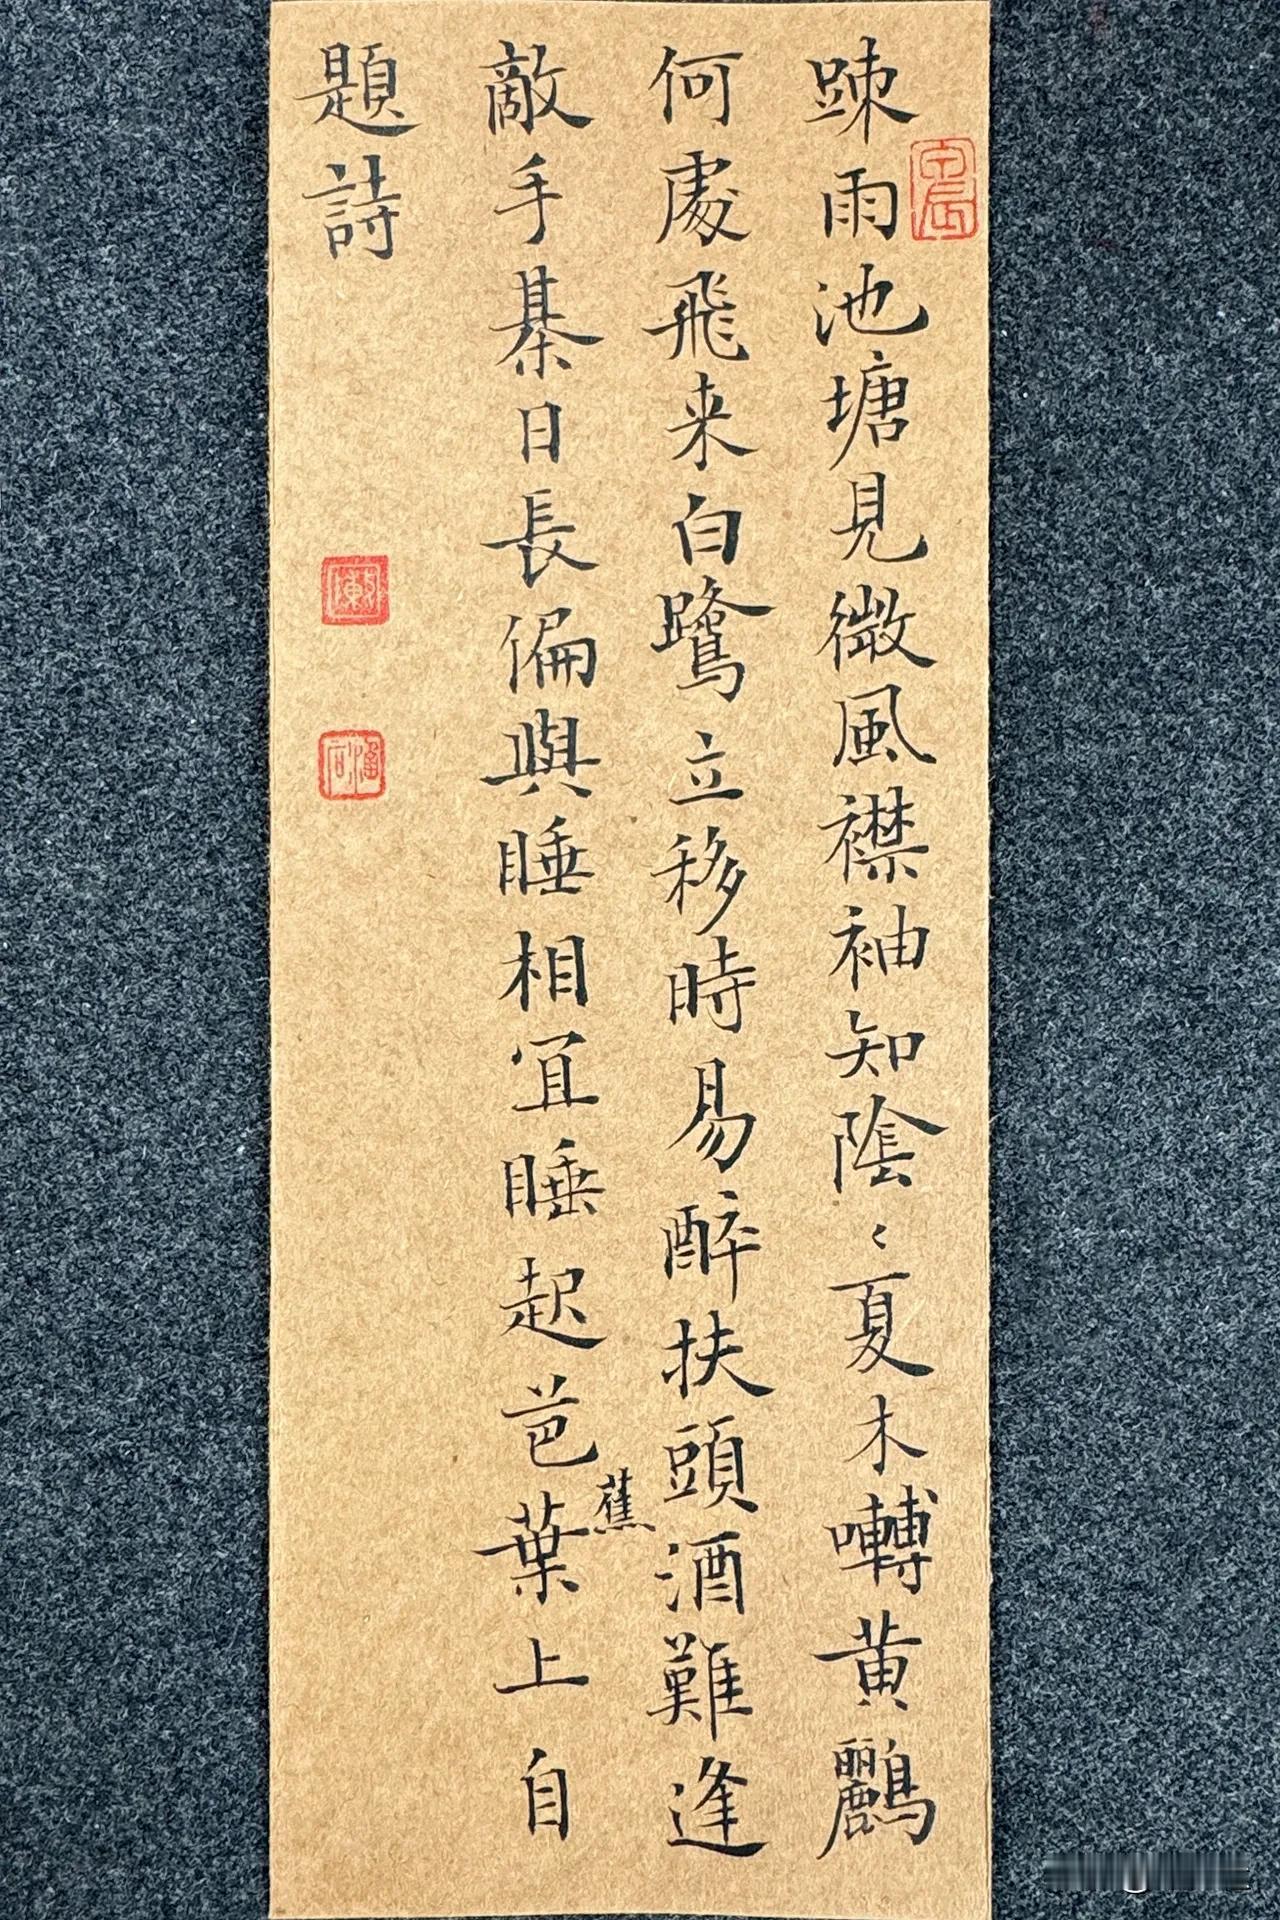 踈雨池塘見微風襟袖知陰〻夏木囀黄鸝
何處飛来白鷺立移時易醉扶頭酒難逢
敵手棊日長偏與睡相宜睡起芭葉上自
蕉
題詩